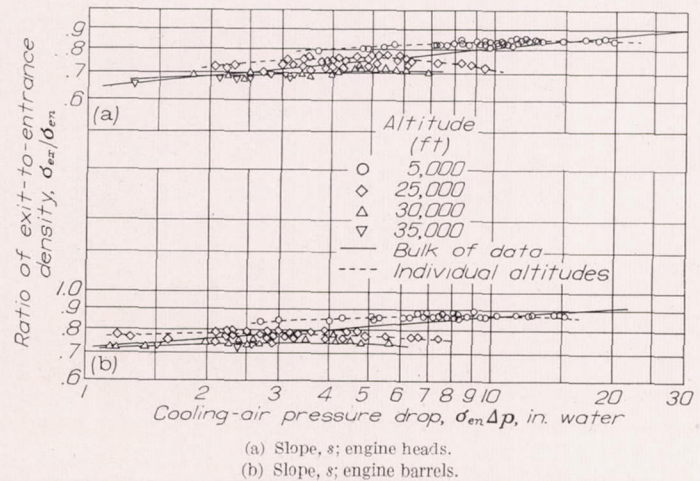 Ratio of exit-to-entrance
density, σex/σen
.9
.8
.7
.6
(a)
Altitude
(ft)
○ 5,000
◇ 25,000
△ 30,000
▽ 35,000
Bulk of data
Individual altitudes
1.0
.9
.8
.7
.6
(b)
1 2 3 4 5 6 7 8 9 10 20 30
Cooling-air pressure drop, σenΔp, in. water
(a) Slope, s; engine heads.
(b) Slope, s; engine barrels.